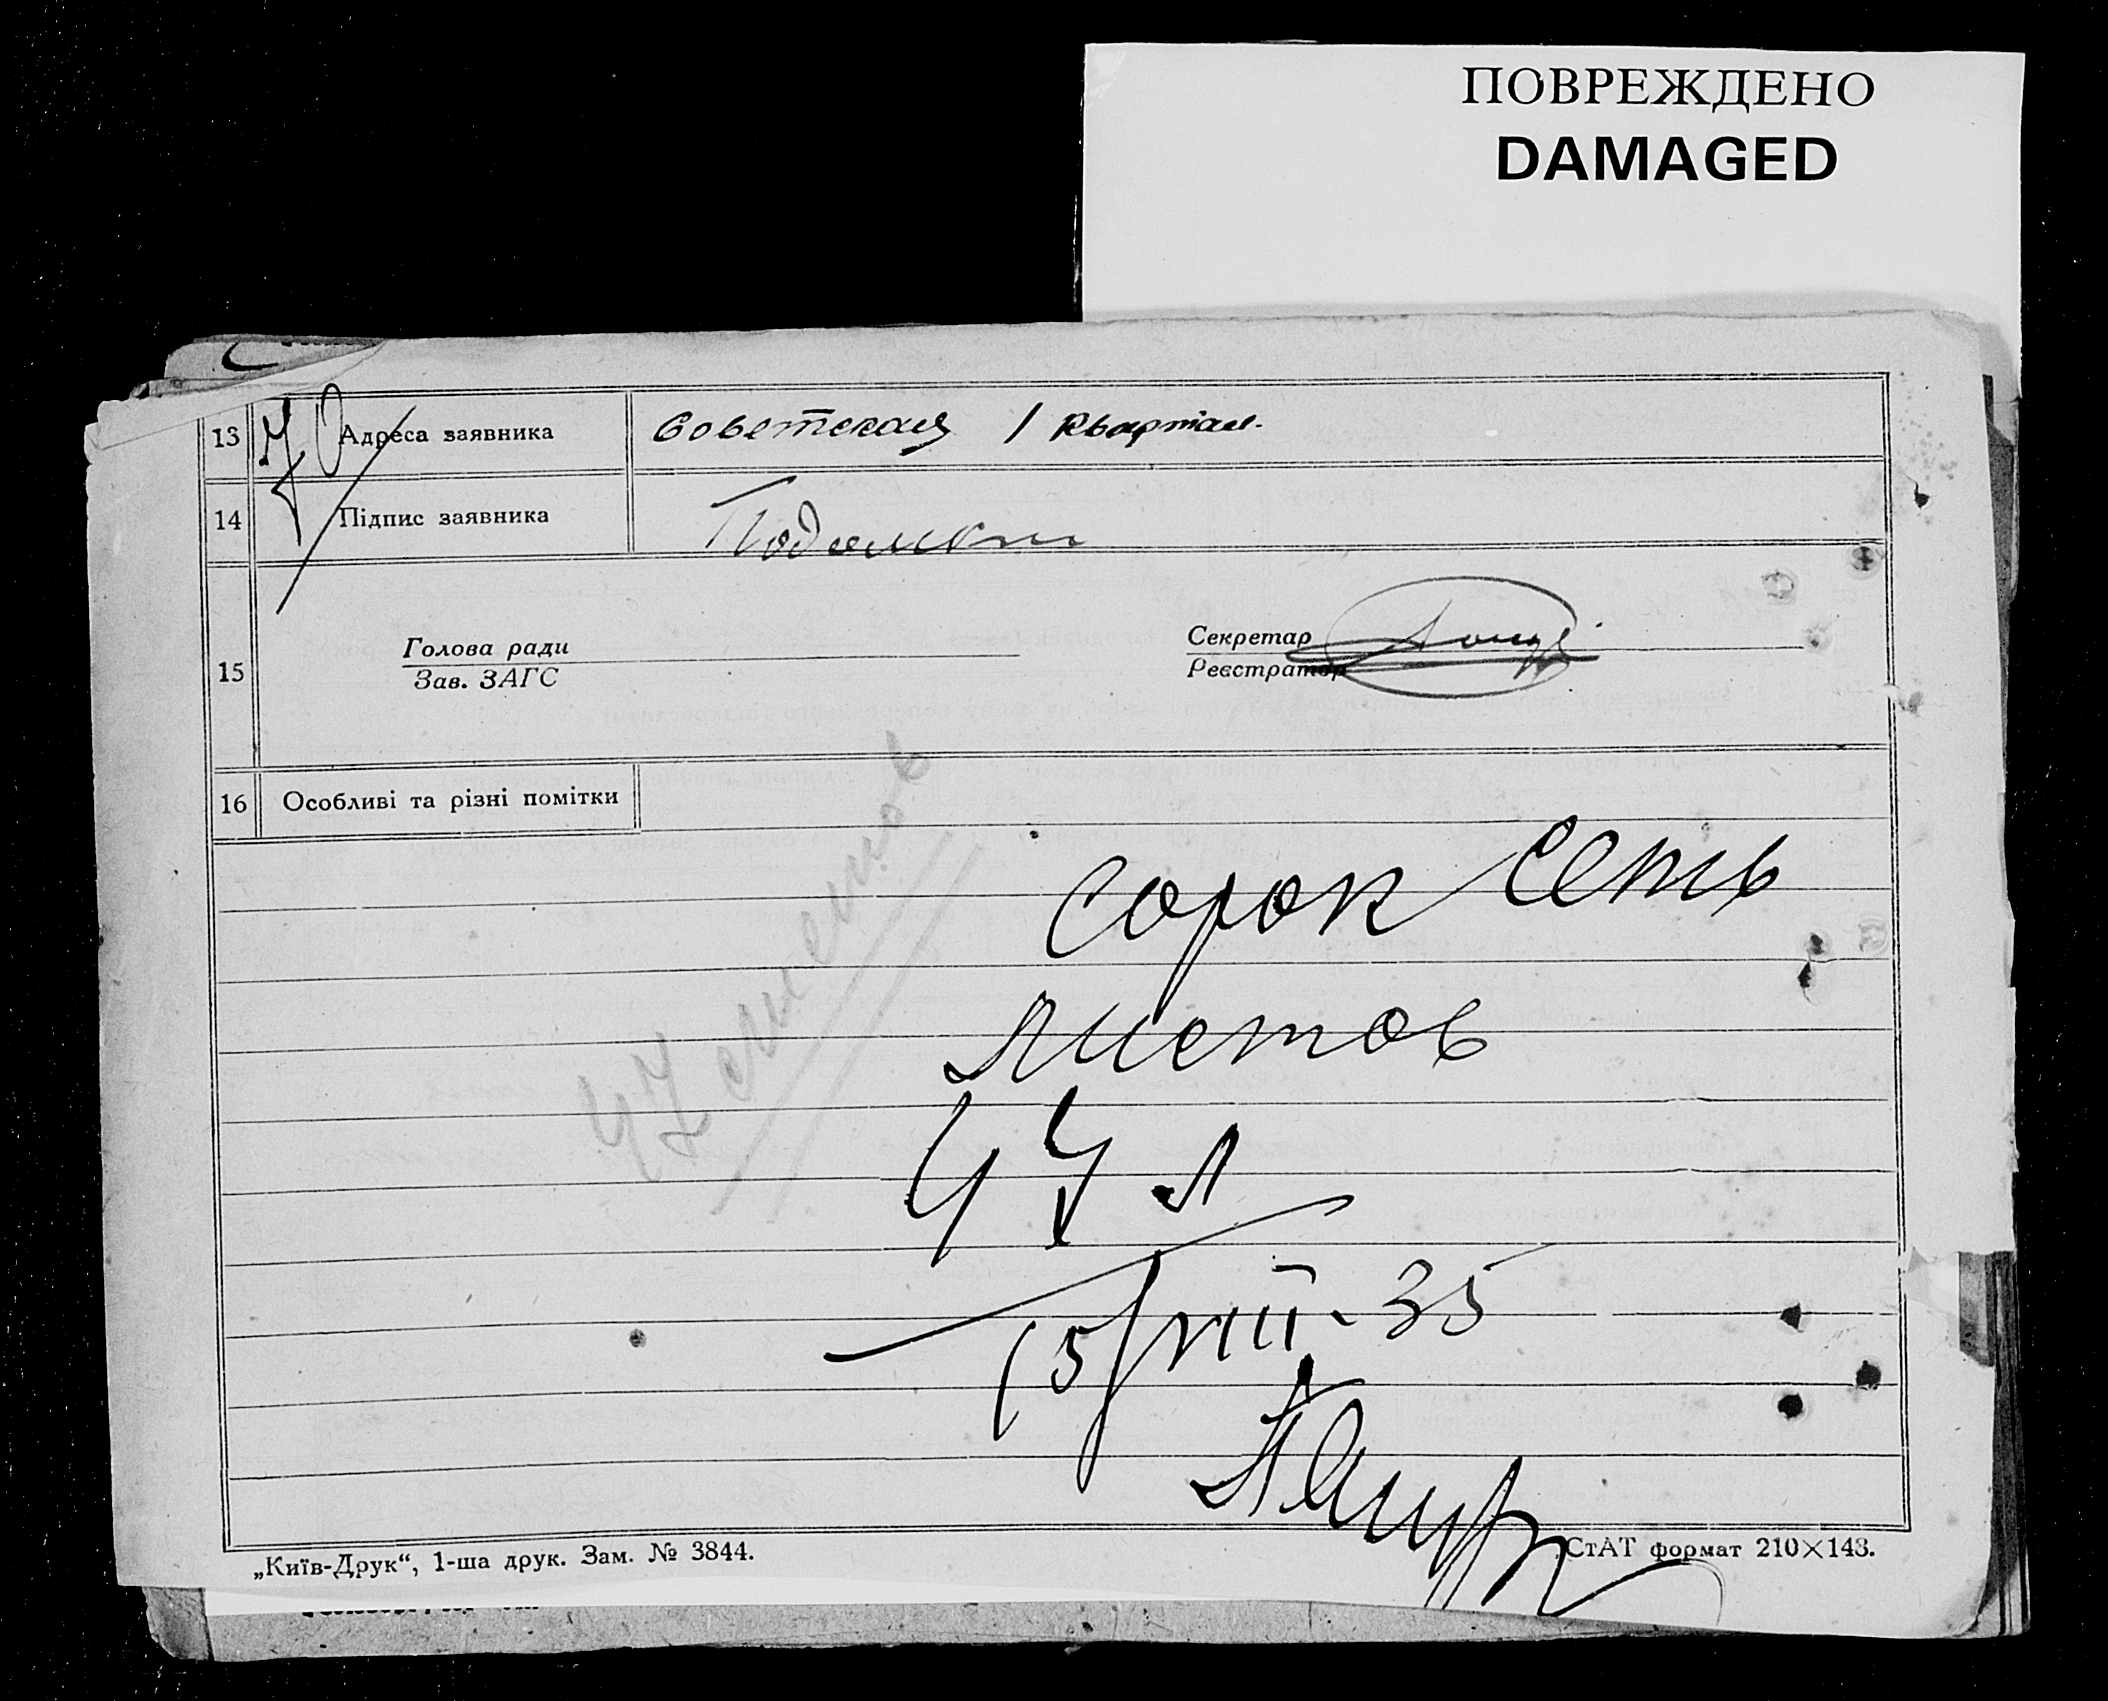 ПОВРЕЖДЕНО
DAMAGED
13 Адреса заявника Советская 1 квартал.
14 Підпис заявника
15 Голова ради Секретар
Зав. ЗАГС Реєстратор
16 Особливі та різні помітки
сорок семь
листов
47 л
15/VIII-35
„Київ-Друк“, 1-ша друк. Зам. № 3844. СтАТ формат 210×143.